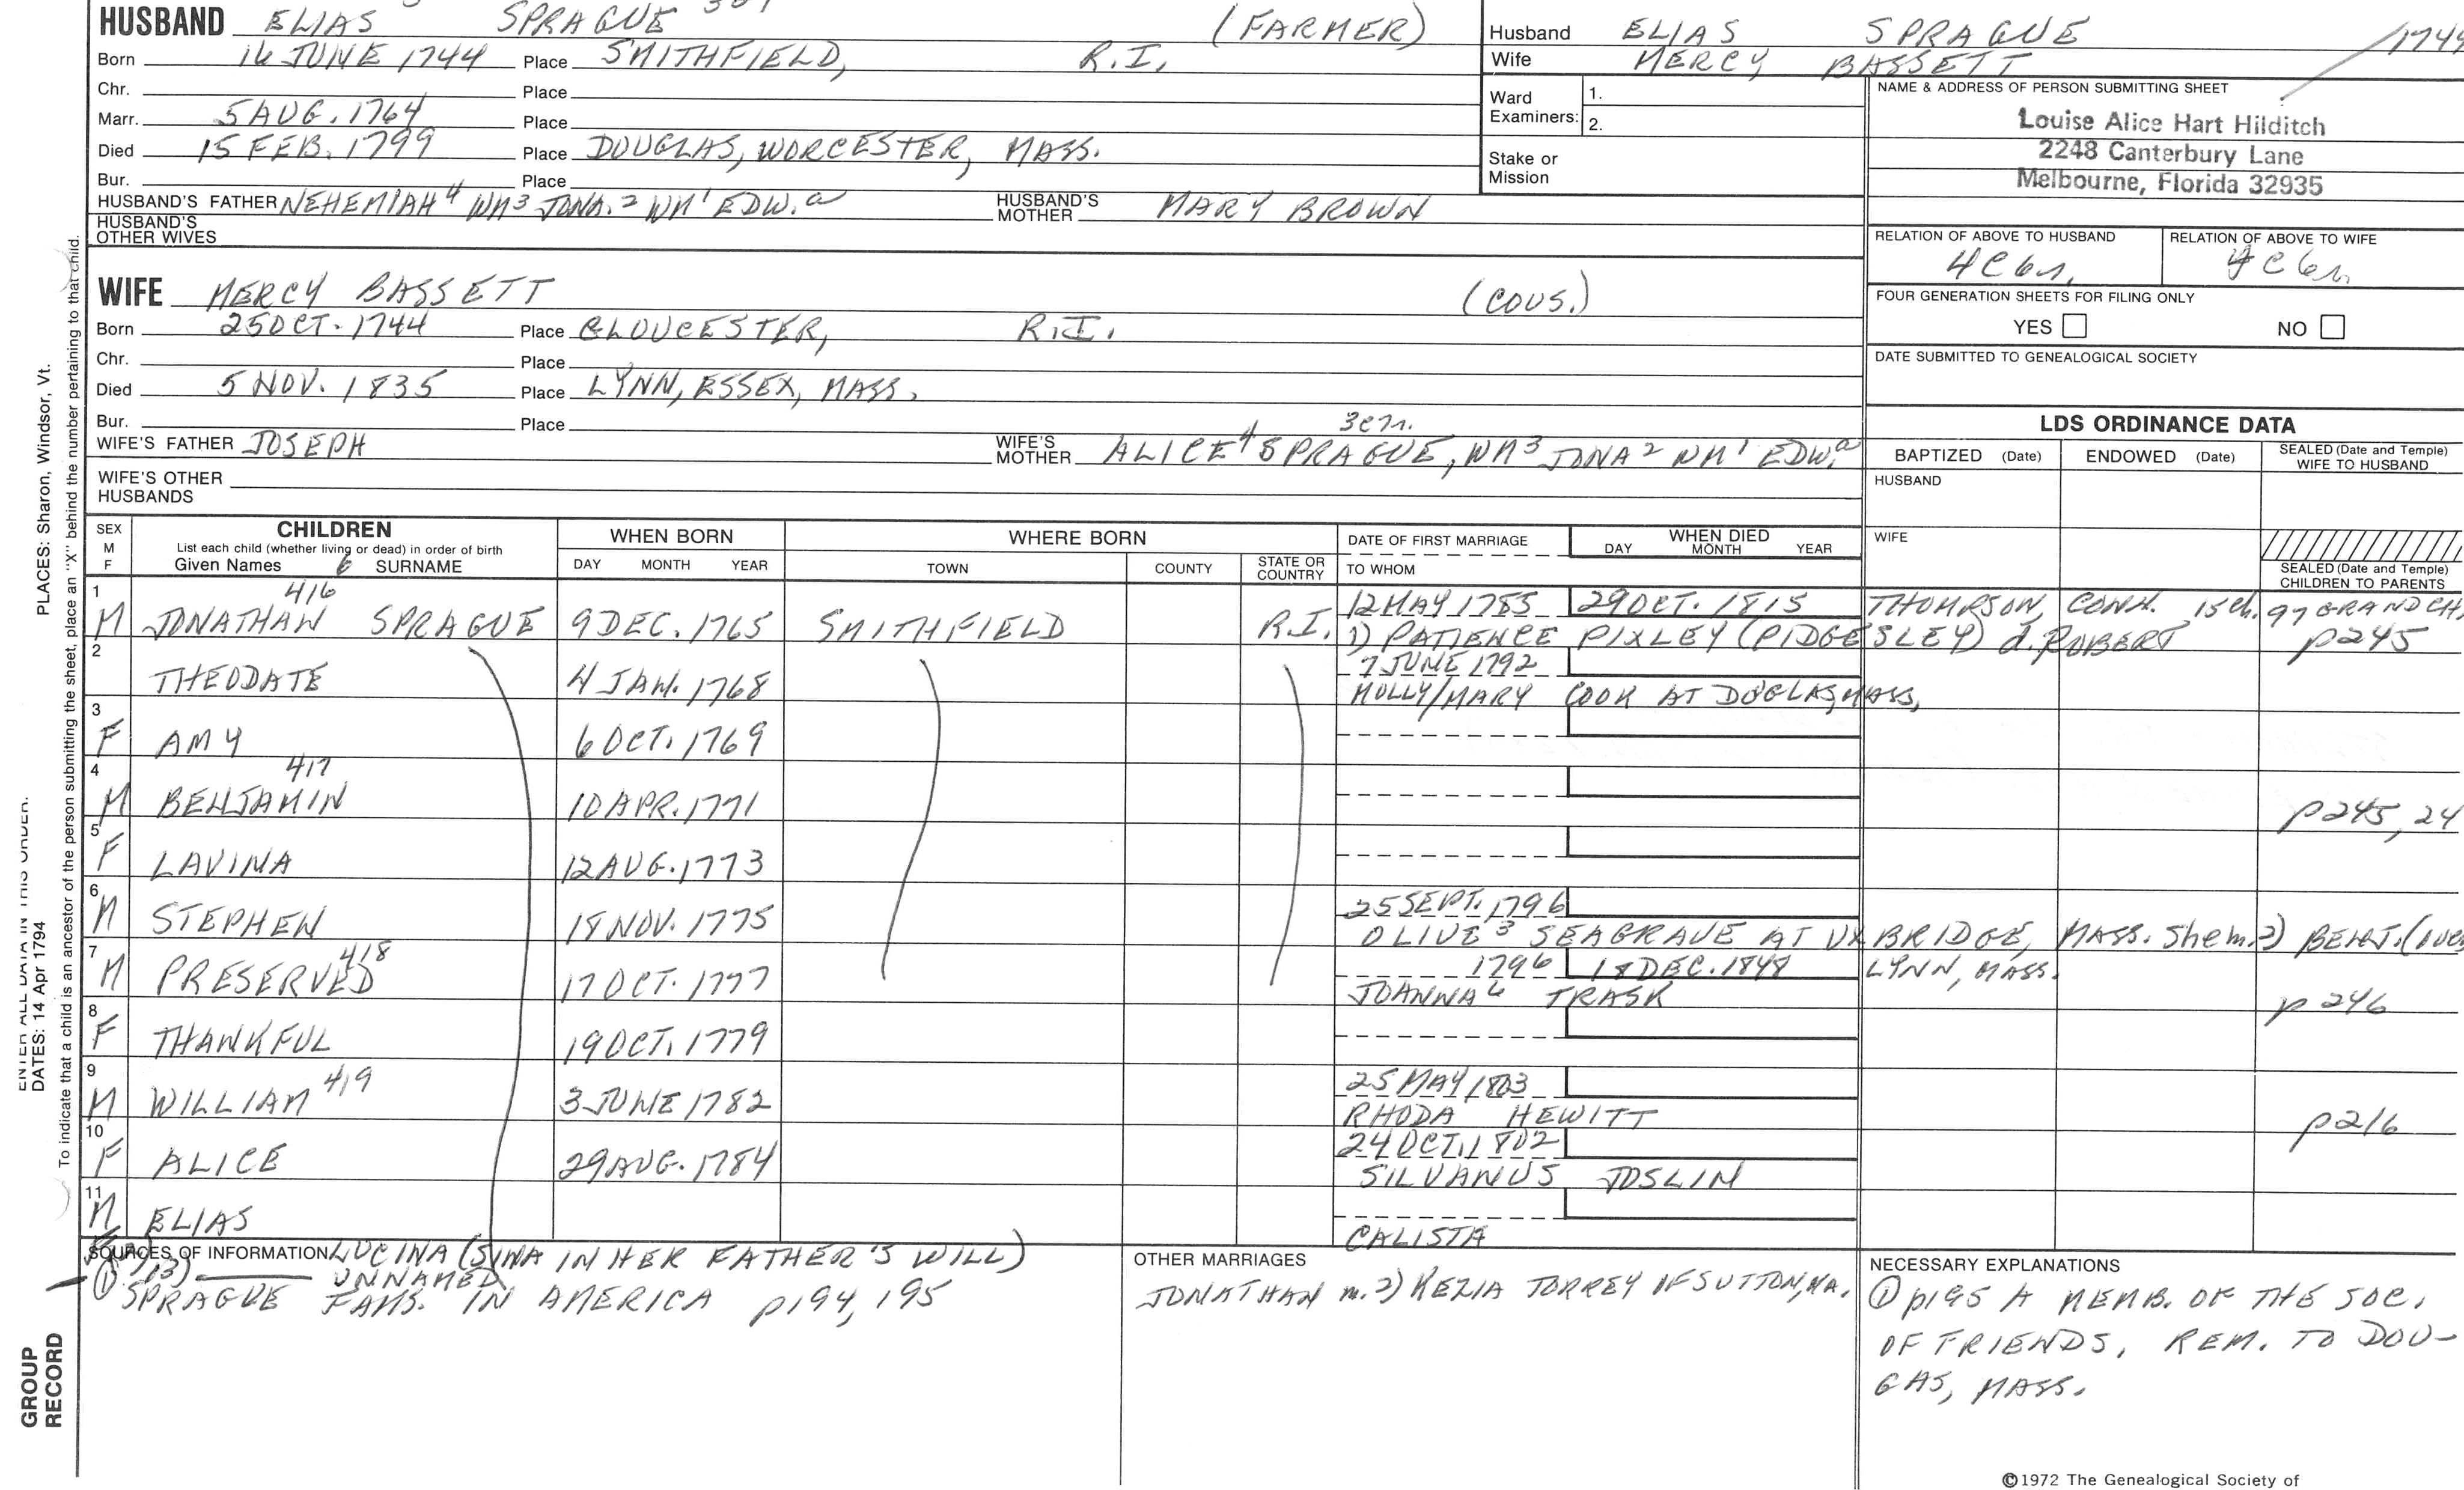 HUSBAND ELIAS SPRAGUE (FARMER)
Born 16 JUNE 1744 Place SMITHFIELD, R.I.
Chr. Place
Marr. 5 AUG. 1764 Place
Died 15 FEB. 1799 Place DOUGLAS, WORCESTER, MASS.
Bur. Place
HUSBAND'S FATHER NEHEMIAH4 WM3 JONA.2 WM1 EDW.a HUSBAND'S MOTHER MARY BROWN
HUSBAND'S OTHER WIVES
WIFE MERCY BASSETT (COUS.)
Born 25 OCT. 1744 Place GLOUCESTER, R.I.
Chr. Place
Died 5 NOV. 1835 Place LYNN, ESSEX, MASS.
Bur. Place
WIFE'S FATHER JOSEPH WIFE'S MOTHER ALICE4 SPRAGUE, WM3 JONA2 WM1 EDW.a
WIFE'S OTHER HUSBANDS
Husband ELIAS SPRAGUE 1744
Wife MERCY BASSETT
Ward Examiners: 1.
2.
Stake or Mission
NAME & ADDRESS OF PERSON SUBMITTING SHEET
Louise Alice Hart Hilditch
2248 Canterbury Lane
Melbourne, Florida 32935
RELATION OF ABOVE TO HUSBAND RELATION OF ABOVE TO WIFE
4C6r. 4C6r.
FOUR GENERATION SHEETS FOR FILING ONLY
YES NO
DATE SUBMITTED TO GENEALOGICAL SOCIETY
LDS ORDINANCE DATA
BAPTIZED (Date) ENDOWED (Date) SEALED (Date and Temple) WIFE TO HUSBAND
HUSBAND
WIFE
SEALED (Date and Temple) CHILDREN TO PARENTS
SEX M F CHILDREN WHEN BORN WHERE BORN DATE OF FIRST MARRIAGE WHEN DIED
List each child (whether living or dead) in order of birth
Given Names SURNAME DAY MONTH YEAR TOWN COUNTY STATE OR COUNTRY TO WHOM DAY MONTH YEAR
416
1 12 MAY 1785 29 OCT. 1815 THOMPSON, CONN. 15 ch. 97 GRANDCH.
M JONATHAN SPRAGUE 9 DEC. 1765 SMITHFIELD R.I. 1) PATIENCE PIXLEY (PIDGESLEY) d. ROBERT p245
2 7 JUNE 1792
THEODATE 4 JAN. 1768 MOLLY/MARY COOK AT DOUGLAS, MASS.
3
F AMY 6 OCT. 1769
4 417
M BENJAMIN 10 APR. 1771 p245, 24
5
F LAVINA 12 AUG. 1773
6 25 SEPT. 1796
M STEPHEN 18 NOV. 1775 OLIVE3 SEAGRAVE AT UXBRIDGE, MASS. She m. 2) BENJ.
7 418 1796 18 DEC. 1848 LYNN, MASS.
M PRESERVED 17 OCT. 1777 JOANNA6 TRASK p246
8
F THANKFUL 19 OCT. 1779
9 419 25 MAY 1803
M WILLIAM 3 JUNE 1782 RHODA HEWITT p216
10 24 OCT. 1802
F ALICE 29 AUG. 1784 SILVANUS JOSLIN
11
M ELIAS CALISTA
SOURCES OF INFORMATION LUCINA (SINA IN HER FATHER'S WILL)
13) UNNAMED
① SPRAGUE FAMS. IN AMERICA p194, 195
OTHER MARRIAGES
JONATHAN m. 2) KEZIA TORREY OF SUTTON, MA.
NECESSARY EXPLANATIONS
① p195 A MEMB. OF THE SOC.
OF FRIENDS, REM. TO DOU-
GAS, MASS.
©1972 The Genealogical Society of
PLACES: Sharon, Windsor, Vt.
ENTER ALL DATA IN THIS ORDER:
DATES: 14 Apr 1794
To indicate that a child is an ancestor of the person submitting the sheet, place an "X" behind the number pertaining to that child.
GROUP
RECORD